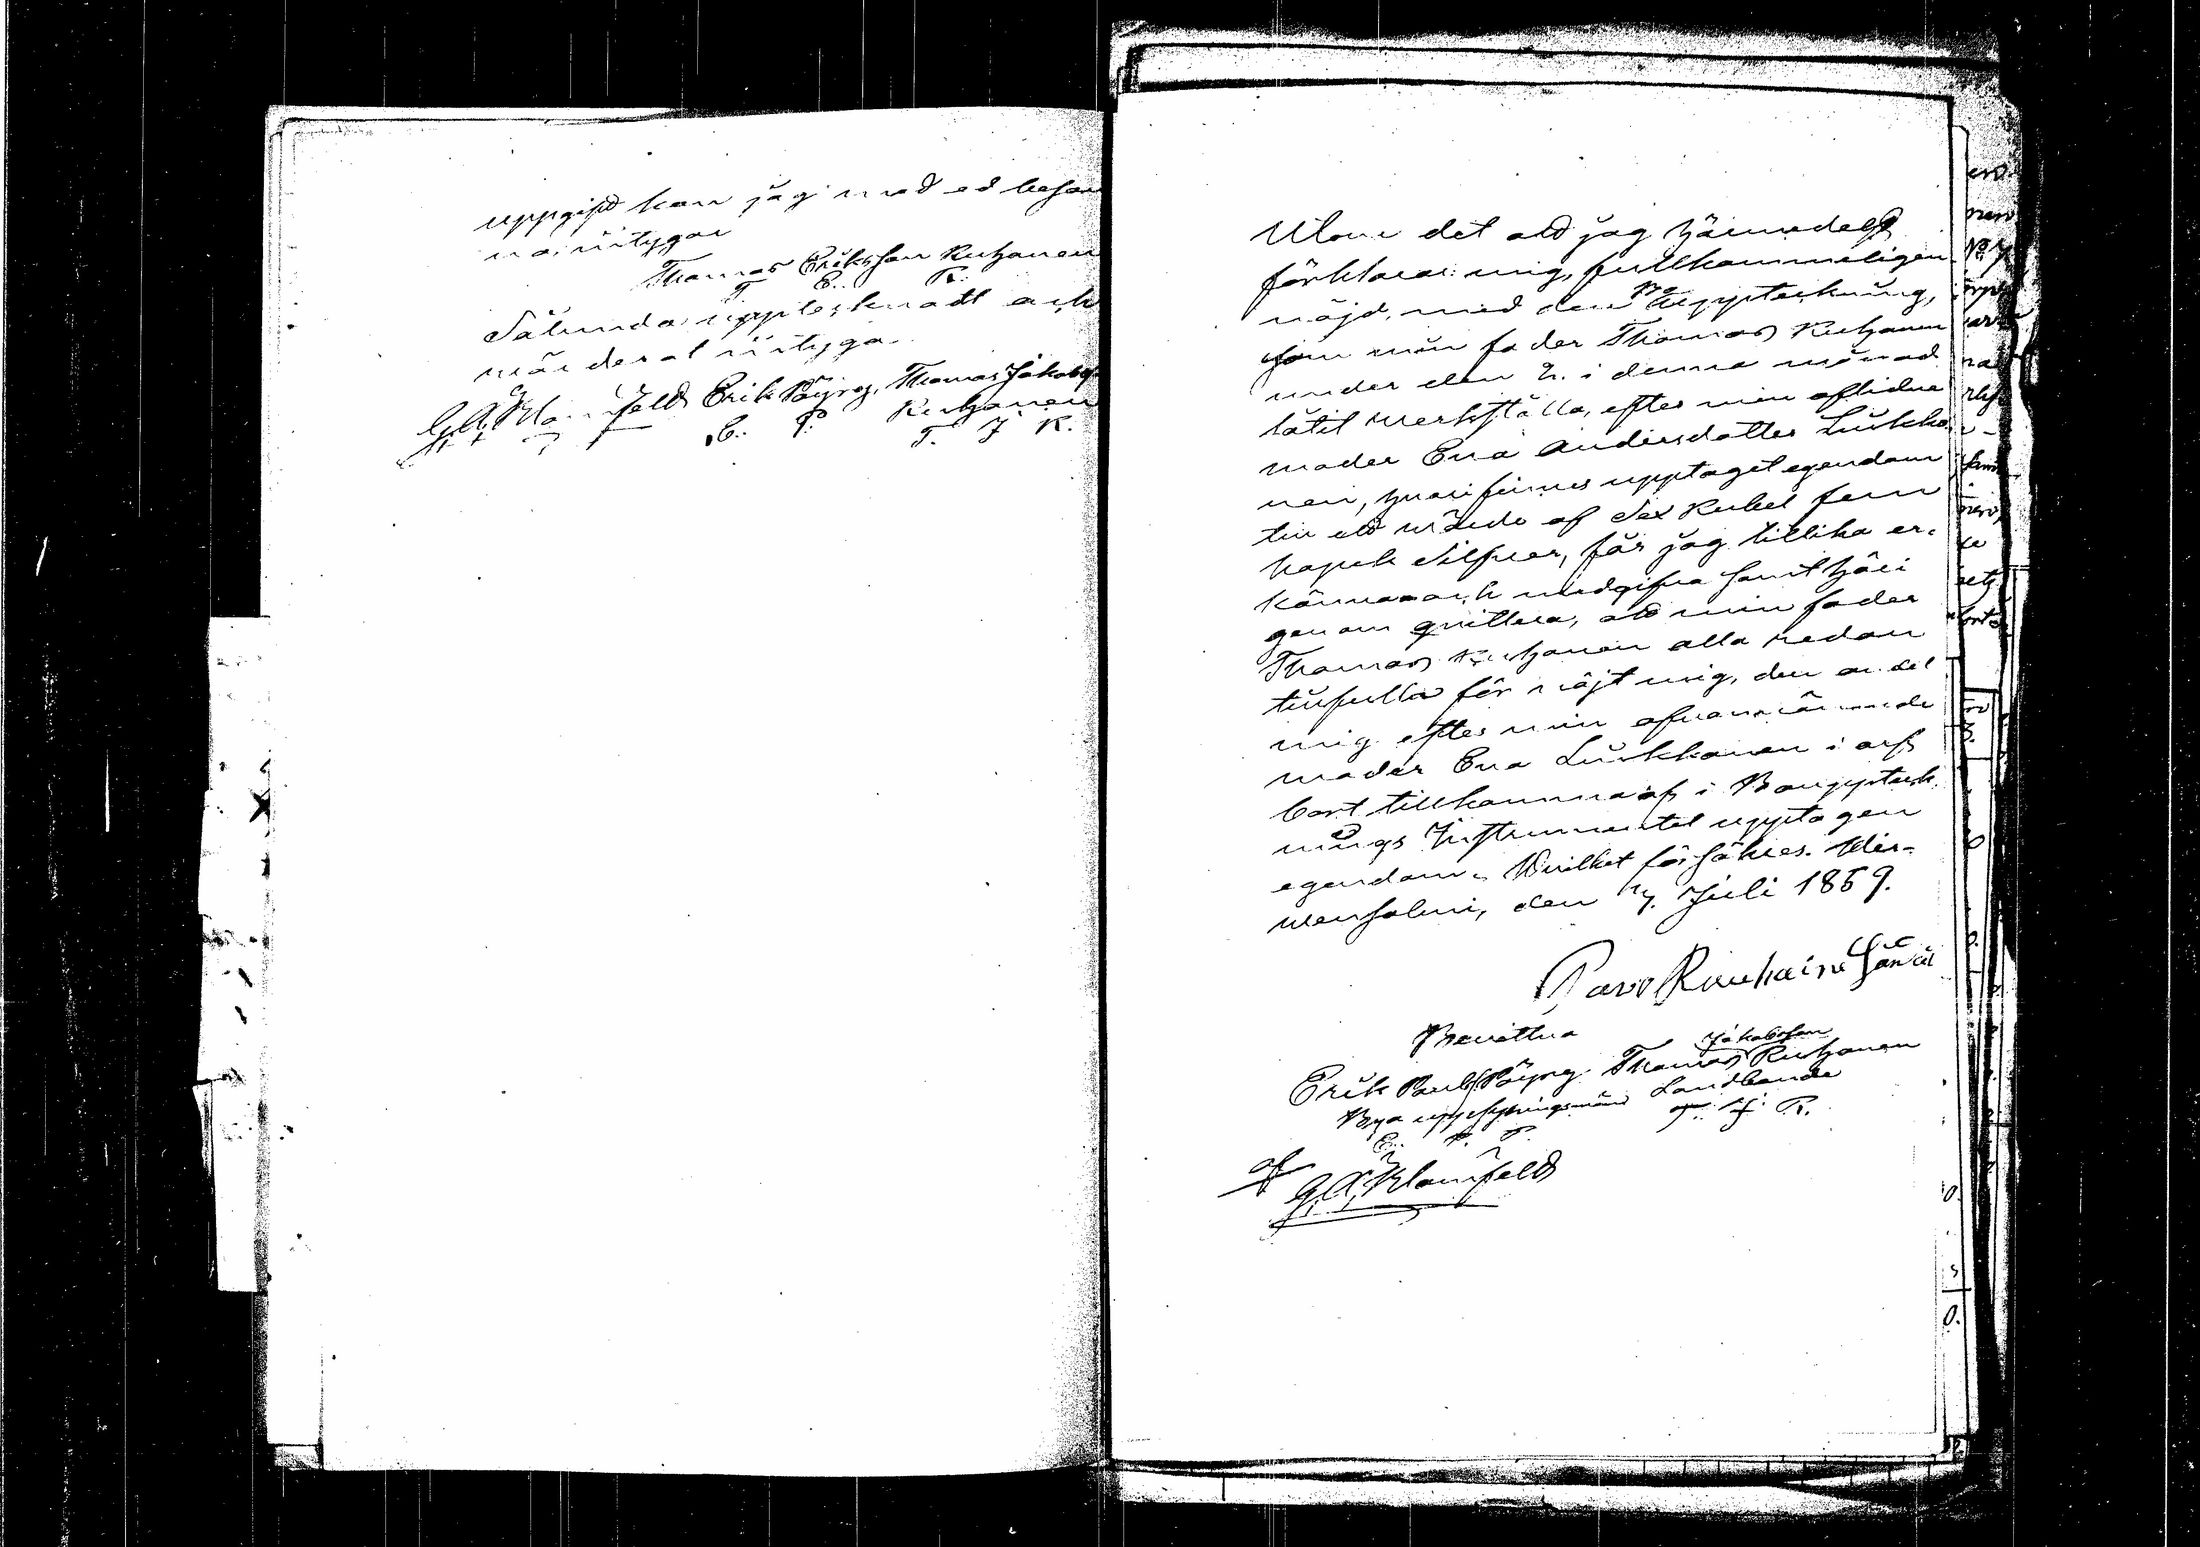 uppgift kan jag med ed besan
na, intygar
Thomas Eriksson Ruhanen
T. E. R.
Sålunda upptecknadt och
värderat intyga
G. A. Blomfeldt Erik Pöyry, Thomas Jakobss
Ruhanen
E. P. T. J. R.
Utom det att jag härmedelst
förklarar mig fullkommeligen
nöjd, med den Bouppteckning,
som min fader Thomas Ruhanen
under den 2. i denna månad
låtit werkställa, efter min aflidna
moder Eva Andersdotter Luukko-
nen, hwari finnes upptaget egendom
till ett wärde af Sex Rubel fem
kopek Silfwer, får jag tillika er-
känna och medgifva samt häri
genom qvittera, att min fader
Thomas Ruhanen alla redan
tillfullo för nöjt mig, den andel
mig efter min ofvannämnde
moder Eva Luukkonen i arf
bort tillkomma af i Bouppteck-
nings Instrumentet upptagen
egendom. Hvilket försäkras. Ider-
wensalmi, den 7. Juli 1859.
Pavo Ruuhaine
Bevittna
Jakobsson
Erik Paulss. Pöyry. Thomas Ruhanen
Bya uppsyningsman Landbonde
E. P. P. T. J. R.
af
G. A. Blomfeldt